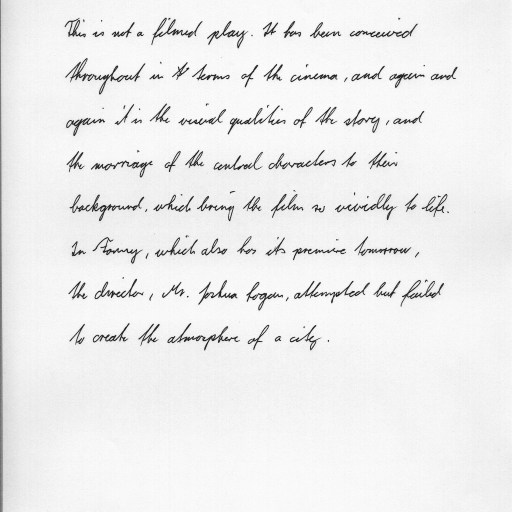 This is not a filmed play. It has been conceived
throughout in terms of the cinema, and again and
again it is the visual qualities of the story, and
the marriage of the central characters to their
background, which bring the film so vividly to life.
In Fanny, which also has its premire tomorrow,
the director, Mr. Joshua Logan, attempted but failed
to create the atmosphere of a city.